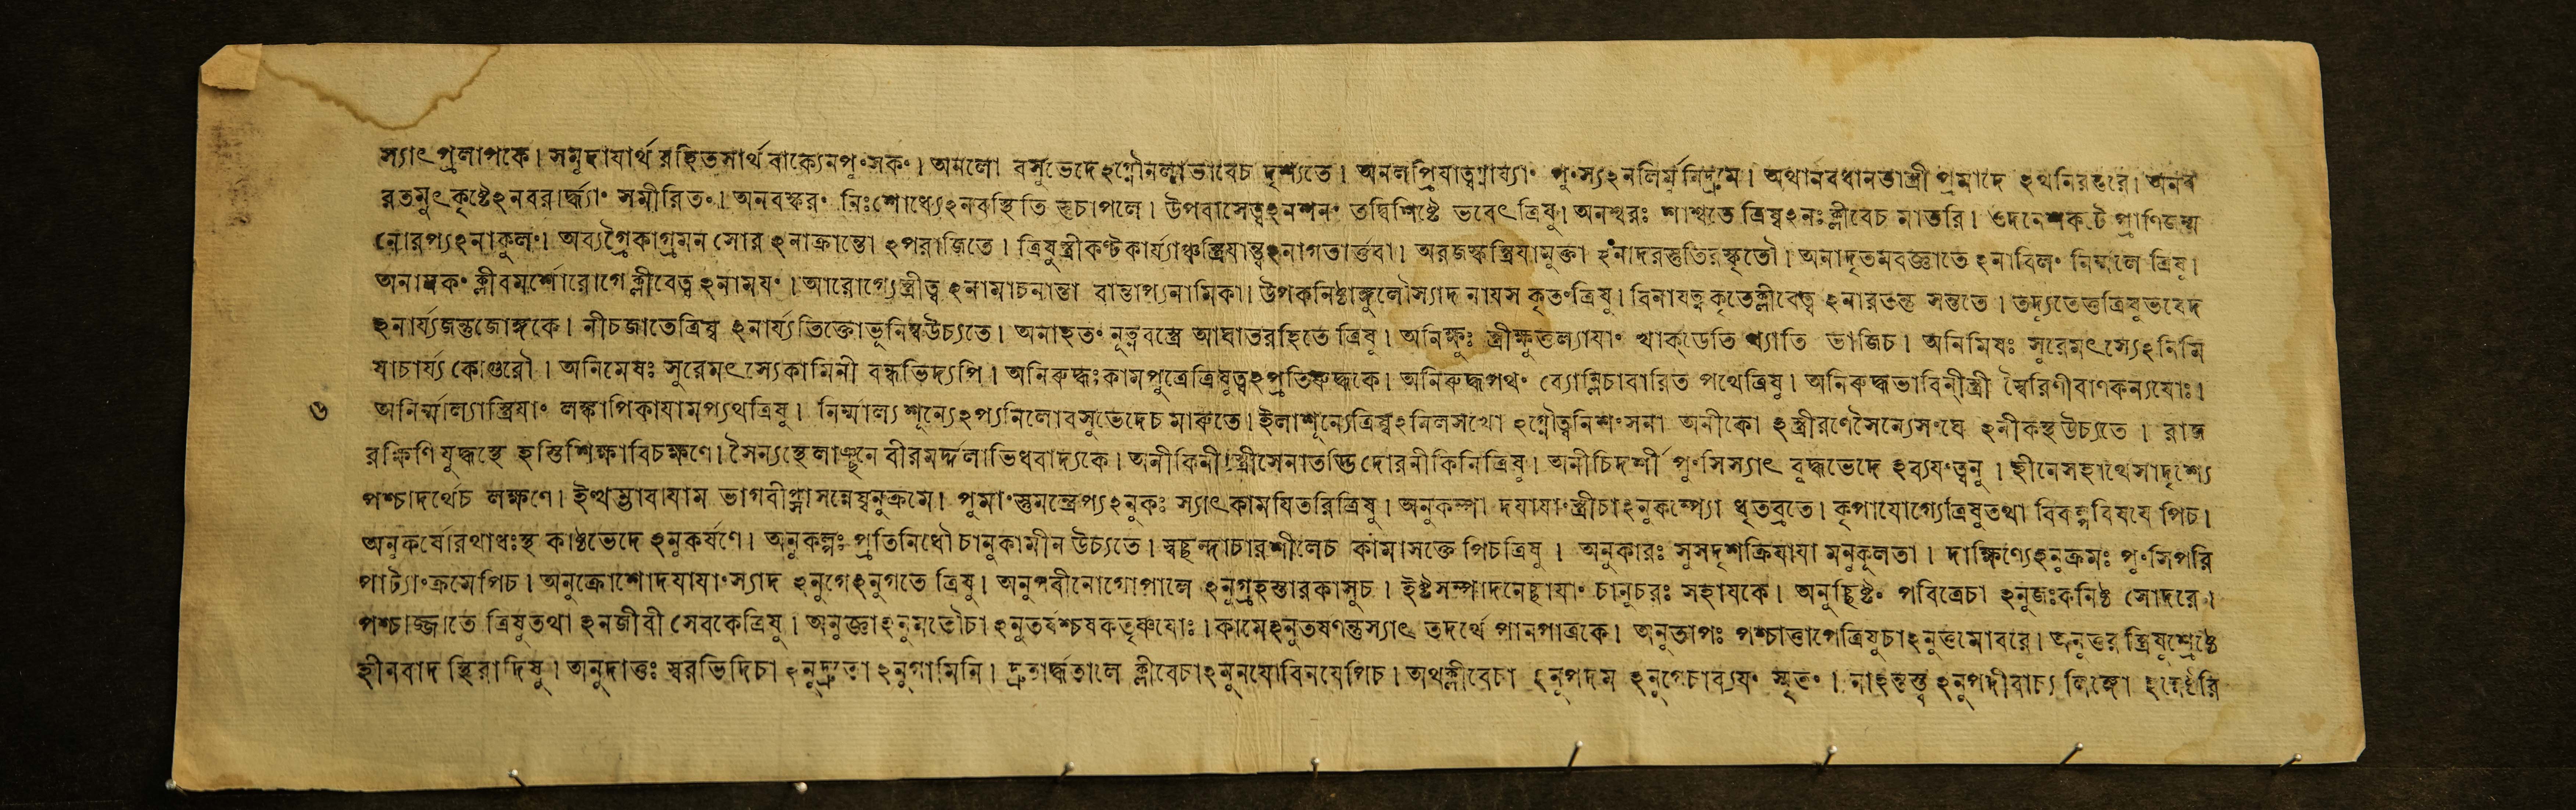 স্যাৎ প্রলাপকে। সমুদাযার্থ রহিতসার্থ বাক্যেনপুংসকং। অনলো বসুভেদেঽগ্নৌনলাভাবেচ দৃশ্যতে। অনলপ্রিযাত্বগ্নায্যাং পুংস্যঽনলির্মুনিদ্রুমে। অথানবধানতাস্ত্রী প্রমাদে ঽথনিরন্তরে। অনব
রতমুৎকৃষ্টেঽনবরার্দ্ধ্যাং সমীরিতং। অনবস্করং নিঃশোধ্যেঽনবস্থিতি স্তুচাপলে। উপবাসেত্বঽনশনং তদ্বিশিষ্টে ভবেৎত্রিষু। অনশ্বরঃ শাশ্বতে ত্রিষ্বঽনঃক্লীবেচ মাতরি। ওদনেশকটে প্রাণিজন্ম
নোরপ্যঽনাকুলং। অব্যগ্রৈকাগ্রমন সোর ঽনাক্রান্তো ঽপরাজিতে। ত্রিষুস্ত্রীকণ্টকার্য্যাঞ্চস্ত্রিযান্ত্বঽনাগতার্ত্তবা। অরজস্কস্ত্রিযামুক্তা ঽনাদরস্তুতিরস্কৃতৌ। অনাদৃতমবজ্ঞাতে ঽনাবিলং নির্ম্মলে ত্রিষু।
অনামকং ক্লীবমর্শোরোগে ক্লীবেত্ব ঽনাময়ং। আরোগ্যেস্ত্রীত্ব ঽনামাচনাম্ভা বাম্ভাপ্যনামিকা। উপকনিষ্ঠাঙ্গুলৌস্যাদ নাযস কৃতংত্রিষু। বিনাযত্ন কৃতেক্লীবেত্ব ঽনারতন্তু সন্ততে। তদ্যুতেতত্রিষুভবেদ
ঽনার্য্যজন্তুজোঙ্গকে। নীচজাতেত্রিষ্ব ঽনার্য্যতিক্তোভূনিম্বউচ্যতে। অনাহতং নূত্নবস্ত্রে আঘাতরহিতে ত্রিষু। অনিক্ষুঃ স্ত্রীক্ষুতুল্যাযাং খাক্ডেতি খ্যাতি ভাজিচ। অনিমিষঃ সুরেমৎস্যেঽনিমি
ষাচার্য্য কোগুরৌ। অনিমেষঃ সুরেমৎস্যেকামিনী বন্ধভিদ্যপি। অনিরুদ্ধঃকামপুত্রেত্রিষুত্বঽপ্রতিরুদ্ধকে। অনিরুদ্ধপথং ব্যোম্নিচাবারিত পথেত্রিষু। অনিরুদ্ধভাবিনীস্ত্রী স্বৈরিণীবাণকন্যযোঃ।
৬ অনির্ম্মাল্যাস্ত্রিযাং লঙ্কাপিকাযামপ্যথত্রিষু। নির্ম্মাল্য শূন্যেঽপ্যনিলোবসুভেদেচ মারুতে। ইলাশূন্যেত্রিষ্বঽনিলসখো ঽগ্নৌত্বনিশংসনা অনীকো ঽস্ত্রীরণেসৈন্যেসংঘে ঽনীকস্থ উচ্যতে। রাজ
রক্ষিণি যুদ্ধস্থে হস্তিশিক্ষাবিচক্ষণে। সৈন্যস্থেলাঞ্ছনে বীরমর্দ্দলাভিধবাদ্যকে। অনীকিনীস্ত্রীসেনাতদ্ভি দোরনীকিনিত্রিষু। অনীচিদর্শী পুংসিস্যাৎ বুদ্ধভেদে ঽব্যযংত্বনু। হীনেসহার্থেসাদৃশ্যে
পশ্চাদর্থেচ লক্ষণে। ইত্থম্ভাবাযাম ভাগবীপ্সাসন্নেষ্বনুক্রমে। পুমাংস্তুমন্ত্রেপ্যঽনুকঃ স্যাৎকামযিতরিত্রিষু। অনুকম্পা দযাযাংস্ত্রীচাঽনুকম্প্যো ধৃতব্রতে। কৃপাযোগ্যেত্রিষুতথা বিবক্ষবিষযে পিচ।
অনুকর্ষোরথাধঃস্থ কাষ্ঠভেদে ঽনুকর্ষণে। অনুকল্পঃ প্রতিনিধৌ চানুকামীন উচ্যতে। স্বচ্ছন্দাচারশীলেচ কামাসক্তে পিচত্রিষু। অনুকারঃ সুসদৃশক্রিযাযা মনুকূলতা। দাক্ষিণ্যেঽনুক্রমঃ পুংসিপরি
পাট্যাংক্রমেপিচ। অনুক্রোশোদযাযাংস্যাদ ঽনুগেঽনুগতে ত্রিষু। অনুগবীনোগোপালে ঽনুগ্রহস্তারকাসুচ। ইষ্টসম্পাদনেচ্ছাযাং চানুচরঃ সহাযকে। অনুচ্ছিষ্টং পবিত্রেচা ঽনুজঃকনিষ্ঠ সোদরে।
পশ্চাজ্জাতে ত্রিষুতথা ঽনজীবী সেবকেত্রিষু। অনুজ্ঞাঽনুমতৌচা ঽনুতর্ষশ্চষকতৃষ্ণযোঃ। কামেঽনুতষণন্তুস্যাৎ তদর্থে পানপাত্রকে। অনুতাপঃ পশ্চাত্তাপেত্রিষুচাঽনুত্তমোবরে। অনুত্তর স্ত্রিষুশ্রেষ্ঠে
হীনবাদ স্থিরাদিষু। অনুদাত্তঃ স্বরভিদিচা ঽনুদ্রুতো ঽনুগামিনি। দ্রুতার্দ্ধতালে ক্লীবেচাঽনুনযোবিনযেপিচ। অথক্লীবেচা ঽনুপদম ঽনুগেচাব্যযং স্মৃতং।